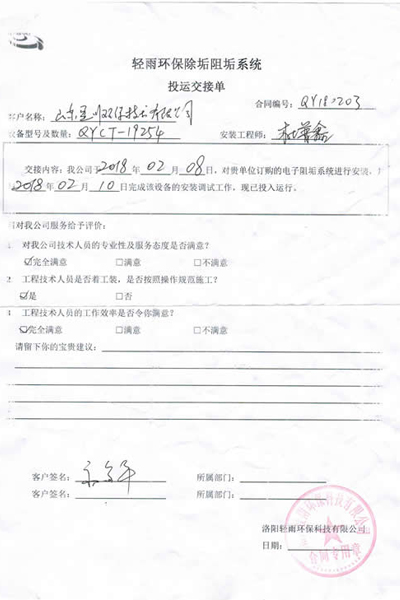 轻雨环保除垢阻垢系统
投运交接单
合同编号：QY180203
客户名称：
设备型号及数量：QYCT-19254 安装工程师：
交接内容：我公司于2018年02月08日，对贵单位订购的电子阻垢系统进行安装，
2018年02月10日完成该设备的安装调试工作，现已投入运行。
对我公司服务给予评价：
对我公司技术人员的专业性及服务态度是否满意？
☑完全满意 □满意 □不满意
工程技术人员是否着工装，是否按照操作规范施工？
☑是 □否
工程技术人员的工作效率是否令你满意？
☑完全满意 □满意 □不满意
请留下你的宝贵建议：
客户签名： 所属部门：
客户签名： 所属部门：
洛阳轻雨环保科技有限公司
日期：